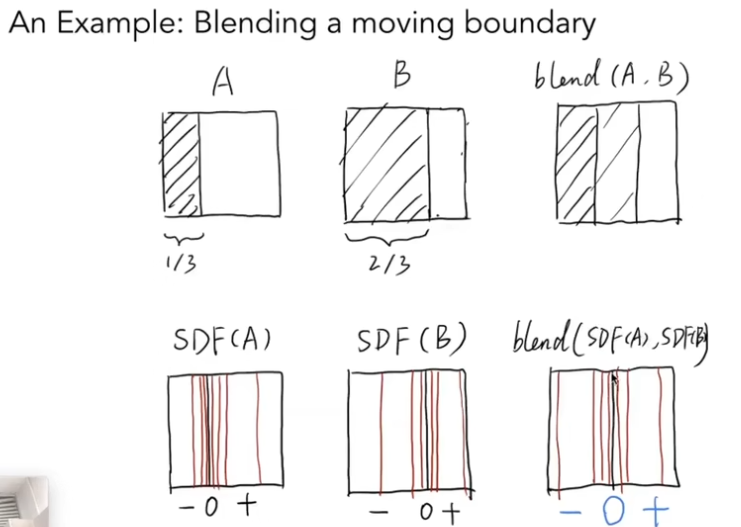 An Example: Blending a moving boundary
A
B
blend (A, B)
1/3
2/3
SDF(A)
SDF(B)
blend(SDF(A), SDF(B))
- 0 +
- 0 +
- 0 +